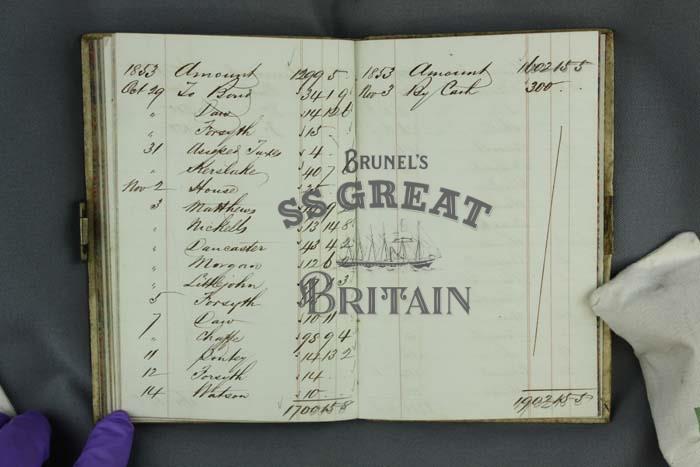 1853 Amount 1299 5
Oct 29 To Bond 34 1 9
" Daw 14 12 6
" Forsyth 15
31 Assessed Taxes 4
" Kerslake 40 7
Nov 2 House
3 Matthews
" Nickells 13 14 8
" Dancaster 43 4 2
" Morgan 12 6
" Littlejohn 3
5 Forsyth
7 Daw 10 11
" Chaffe 98 9 4
11 Pontey 14 13 2
12 Forsyth 14
14 Watson 10
1700 15 8
1853 Amount 1602 15 5
Nov 3 By Cash 300
1902 15 5
BRUNEL'S
SS GREAT
BRITAIN